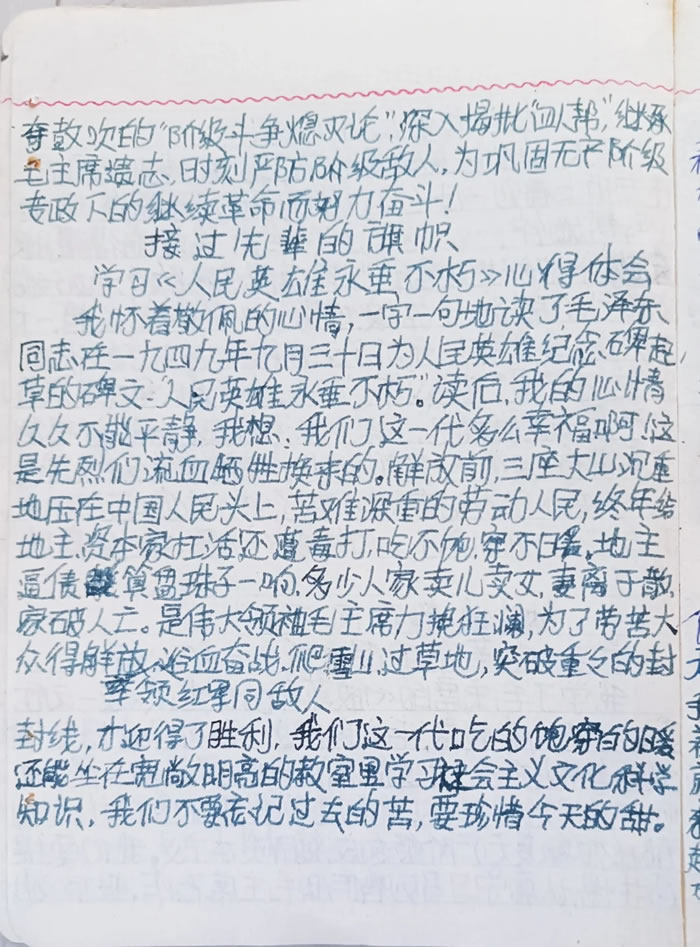 夺鼓吹的“阶级斗争熄灭论”,深入揭批“四人帮”,继承
毛主席遗志,时刻严防阶级敌人,为巩固无产阶级
专政下的继续革命而努力奋斗!
接过先辈的旗帜
学习《人民英雄永垂不朽》心得体会
我怀着敬佩的心情,一字一句地读了毛泽东
同志在一九四九年九月三十日为人民英雄纪念碑起
草的碑文“人民英雄永垂不朽”。读后,我的心情
久久不能平静,我想:我们这一代多么幸福啊!这
是先烈们流血牺牲换来的。解放前,三座大山沉重
地压在中国人民头上,苦难深重的劳动人民,终年给
地主、资本家扛活,还遭毒打,吃不饱,穿不暖。地主
逼债算盘珠子一响,多少人家卖儿卖女,妻离子散,
家破人亡。是伟大领袖毛主席力挽狂澜,为了劳苦大
众得解放,浴血奋战,爬雪山,过草地,突破重重的封
率领红军同敌人
封线,才迎得了胜利,我们这一代吃的饱穿的暖
还能坐在宽敞明亮的教室里学习社会主义文化科学
知识,我们不要忘记过去的苦,要珍惜今天的甜。